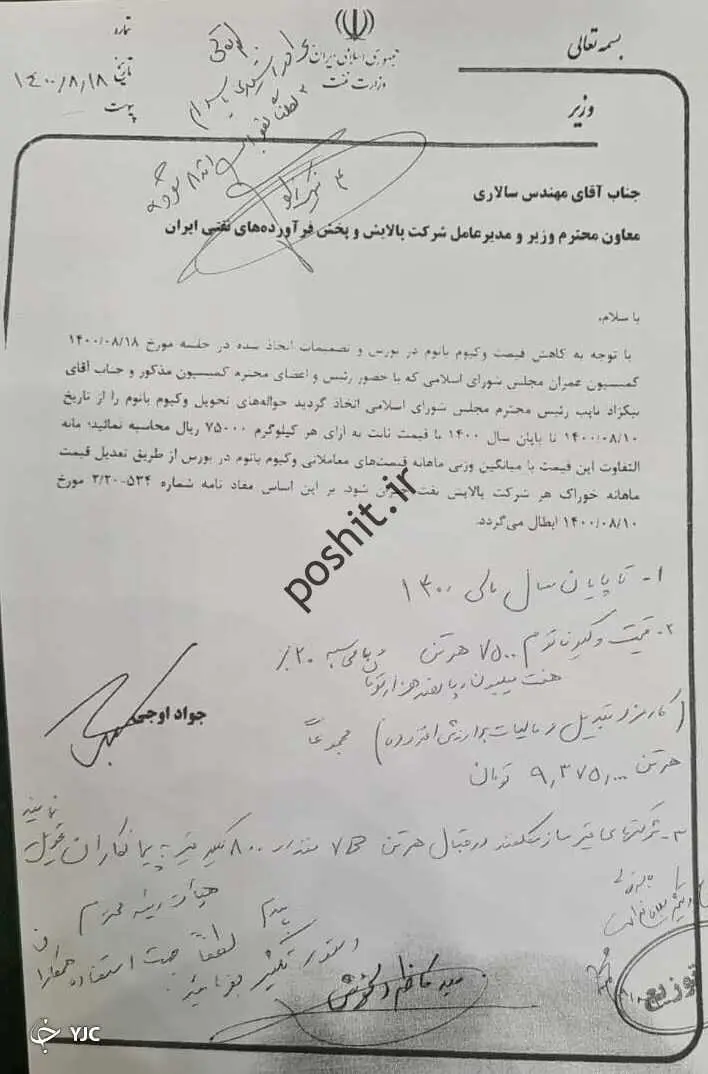 بسمه تعالی
جمهوری اسلامی ایران
وزارت نفت
وزیر
شماره
تاریخ ۱۴۰۰/۸/۱۸
پیوست
جناب آقای مهندس سالاری
معاون محترم وزیر و مدیرعامل شرکت پالایش و پخش فرآورده‌های نفتی ایران
با سلام،
با توجه به کاهش قیمت وکیوم باتوم در بورس و تصمیمات اتخاذ شده در جلسه مورخ ۱۴۰۰/۰۸/۱۸
کمیسیون عمران مجلس شورای اسلامی که با حضور رئیس و اعضای محترم کمیسیون مذکور و جناب آقای
نیکزاد نایب رئیس محترم مجلس شورای اسلامی اتخاذ گردید حواله‌های تحویل وکیوم باتوم را از تاریخ
۱۴۰۰/۰۸/۱۰ تا پایان سال ۱۴۰۰ با قیمت ثابت به ازای هر کیلوگرم ۷۵۰۰۰ ریال محاسبه نمائید؛ مابه
التفاوت این قیمت با میانگین وزنی ماهانه قیمت‌های معاملاتی وکیوم باتوم در بورس از طریق تعدیل قیمت
ماهانه خوراک هر شرکت پالایش نفت جبران شود. بر این اساس مفاد نامه شماره ۵۳۴-۲/۲۰ مورخ
۱۴۰۰/۰۸/۱۰ ابطال می‌گردد.
poshit.ir
۱- تا پایان سال مالی ۱۴۰۰
۲- قیمت وکیوم باتوم ۷۵۰۰ هر تن با محاسبه ۲۰٪
هفت میلیون و پانصد هزار تومان
جواد اوجی
(کارمزد تبدیل و مالیات بر ارزش افزوده) مجموعاً
هر تن ۹,۳۷۵,۰۰۰ تومان
۳- شرکتهای قیر ساز مکلفند در قبال هر تن VB مقدار ۸۰۰ کیلو قیر به پیمانکاران تحویل
نمایند
هیأت رئیسه محترم
لطفاً جهت استفاده همکاران
دستور تکثیر بفرمائید
سید کاظم دلخوش
توزیع
YJC